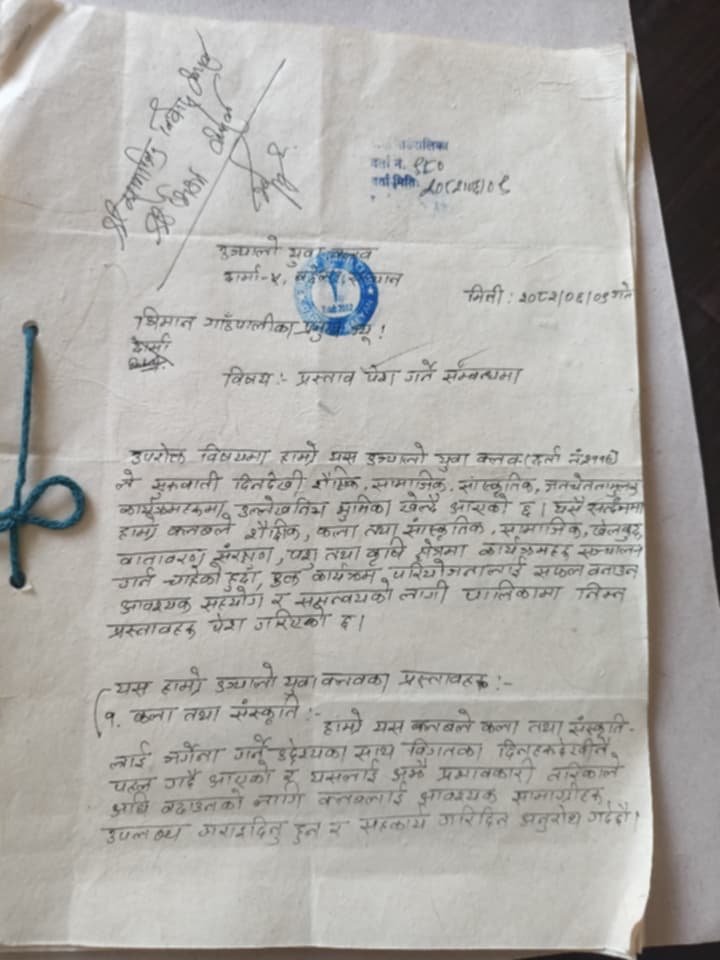 पालिका
दर्ता नं. ९८०
दर्ता मिति: २०८२।०६।०९
उज्यालो युवा क्लव
शार्मा-४,
मिती : २०८२/०६/०९ गते
श्रिमान गाउँपालीका प्रमुख ज्यू !
विषय :- प्रस्ताव पेश गर्ने सम्बन्धमा
उपरोक्त विषयमा हाम्रो यस उज्यालो युवा क्लव (दर्ता नं.
ले सुरुवाती दिनदेखी शैक्षिक, सामाजिक, सांस्कृतिक, जनचेतनामुलक
कार्यक्रमहरूमा उल्लेखनिय भुमिका खेल्दै आएको छ । यसै सन्दर्भमा
हाम्रो क्लबले शैक्षिक, कला तथा सांस्कृतिक, सामाजिक, खेलकुद,
वातावरण संरक्षण, पशु तथा कृषि क्षेत्रमा कार्यक्रमहरू सञ्चालन
गर्न चाहेको हुदाँ, उक्त कार्यक्रम परियोजनालाई सफल बनाउन
आवश्यक सहयोग र समन्वयको लागी पालिकामा निम्न
प्रस्तावहरू पेश गरिएको छ ।
यस हाम्रो उज्यालो युवा क्लवका प्रस्तावहरू :-
१. कला तथा संस्कृति :- हाम्रो यस क्लबले कला तथा संस्कृति-
लाई जर्गेना गर्ने उद्देश्यका साथ विगतका दिनहरूदेखीनै
पहल गर्दै आएको र यसलाई अझै प्रभावकारी तरिकाले
अघि बढाउनको लागि क्लबलाई आवश्यक सामाग्रीहरू
उपलब्ध गराईदिनु हुन र सहकार्य गरिदिन अनुरोध गर्दछौ ।